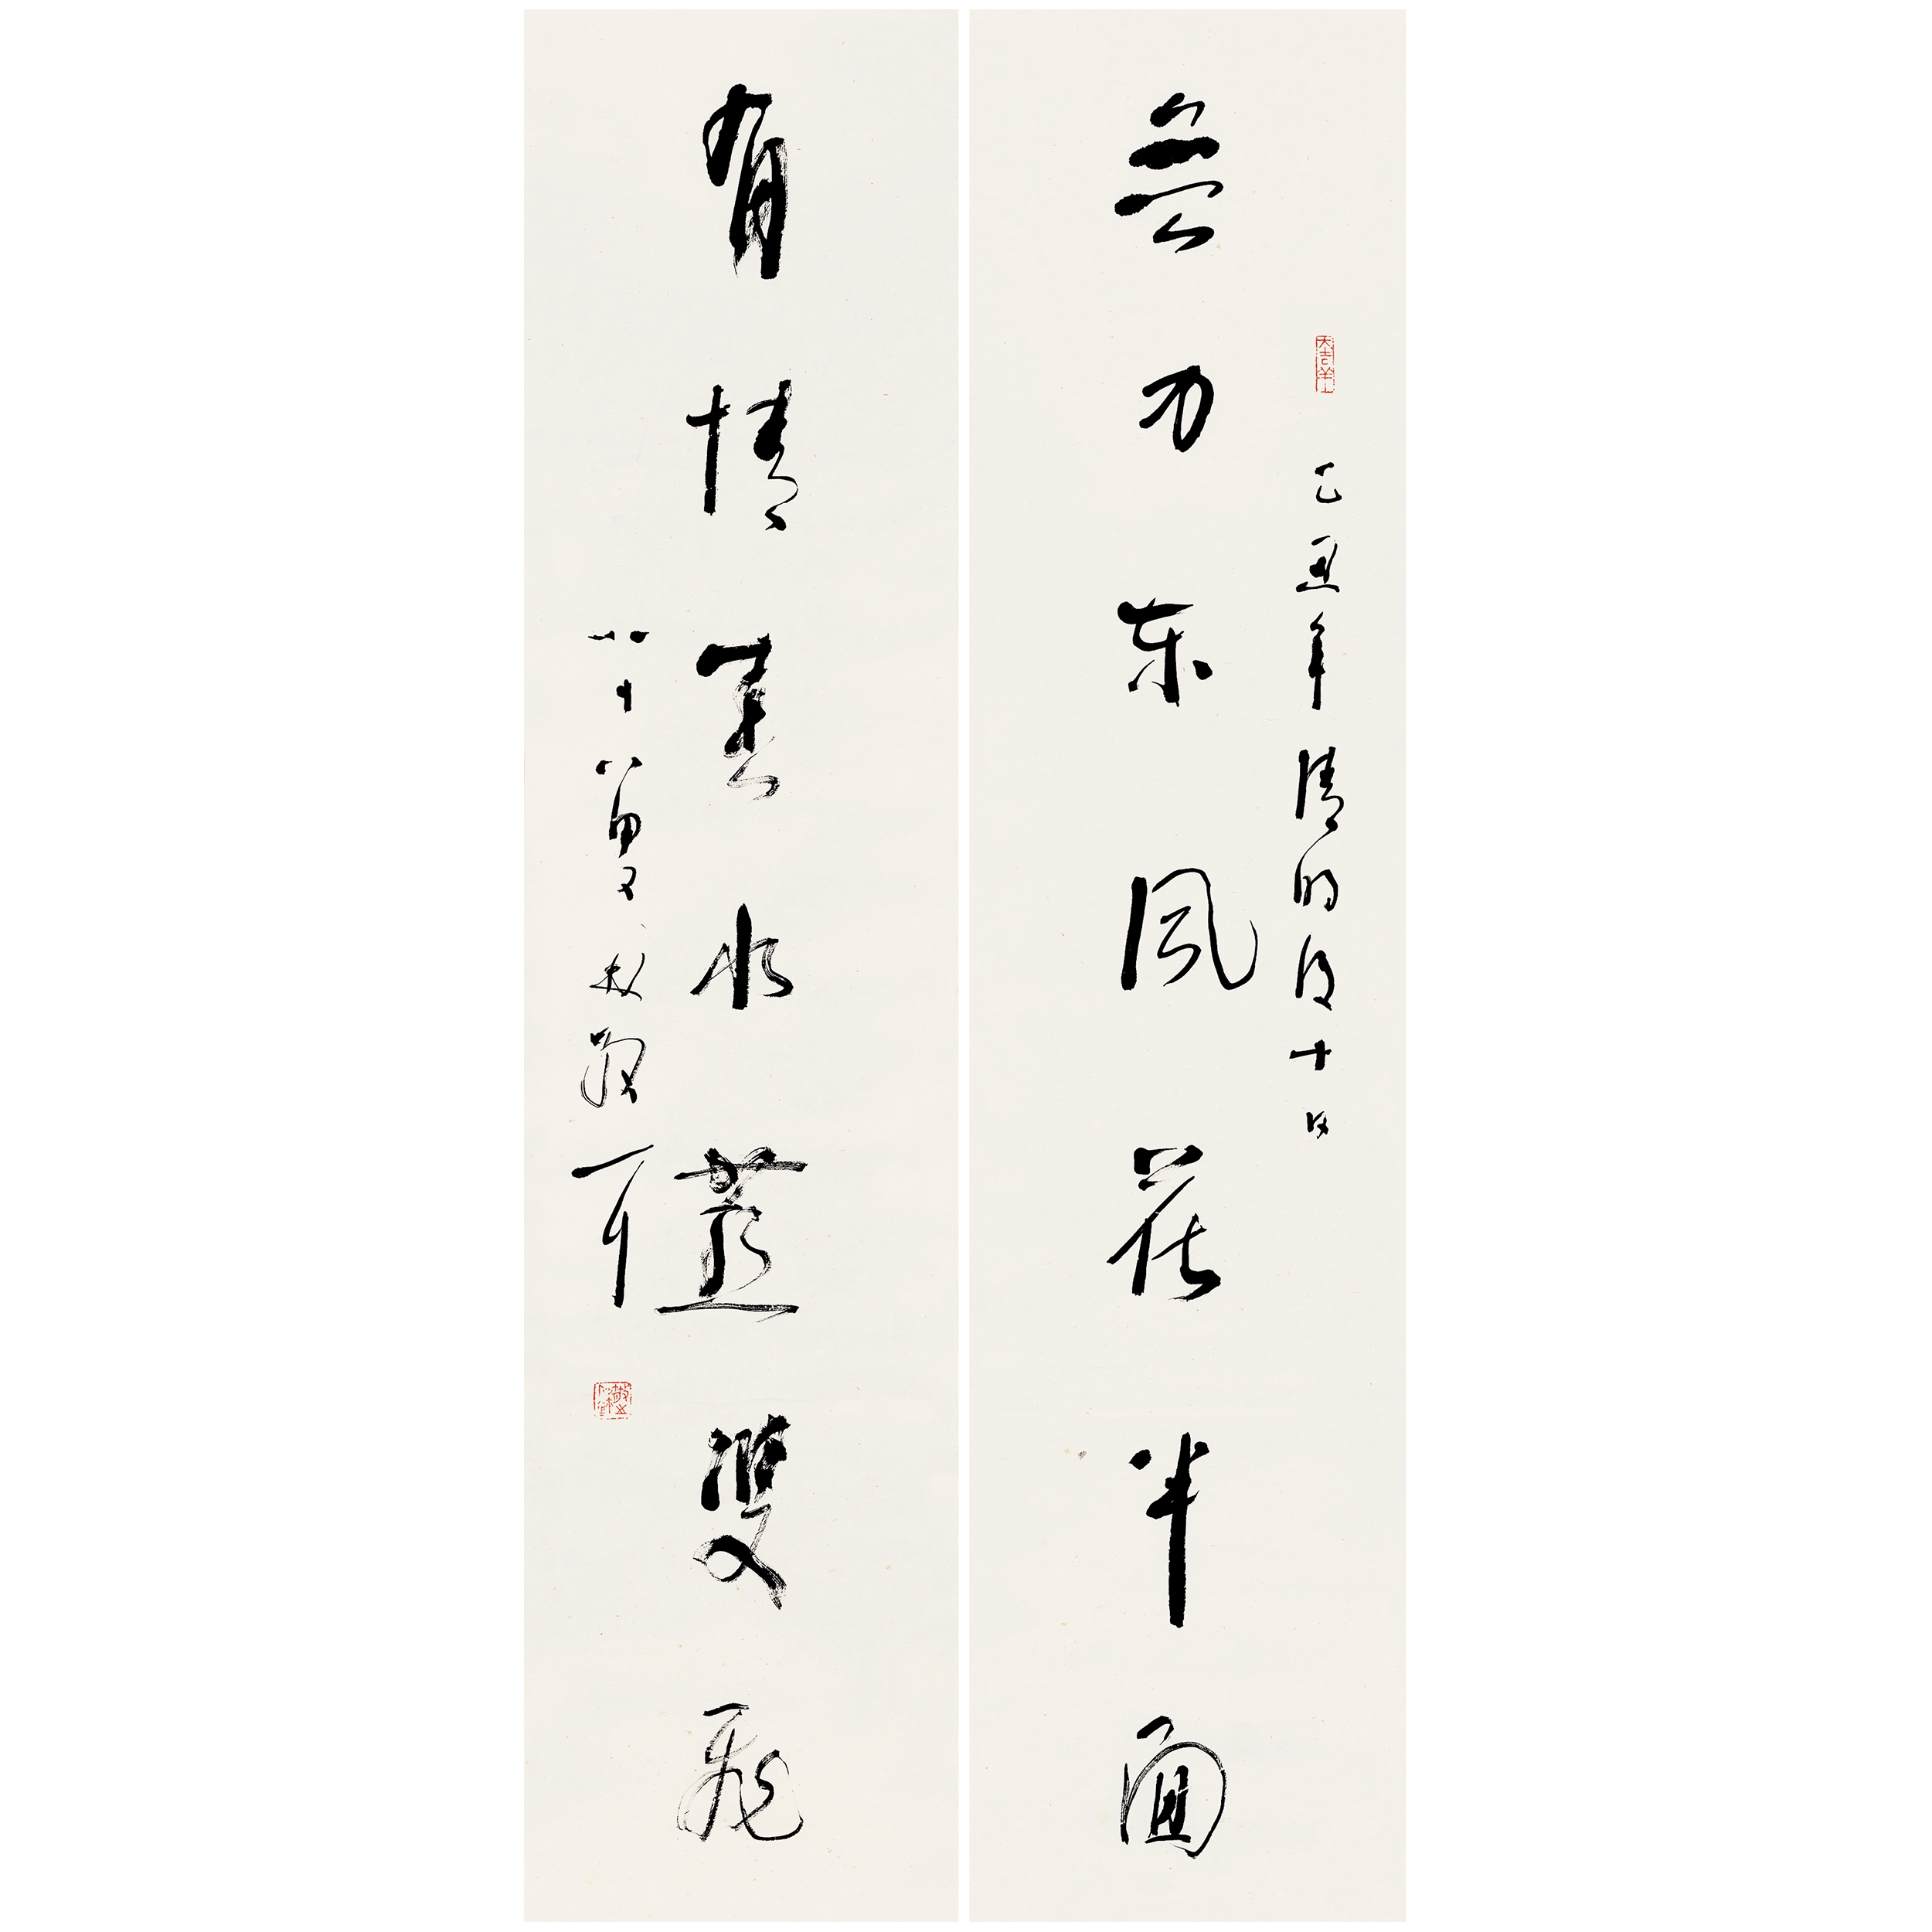 乙丑年清明後十日
無力東風花半面
有情春水燕雙飛
八十八叟林散耳